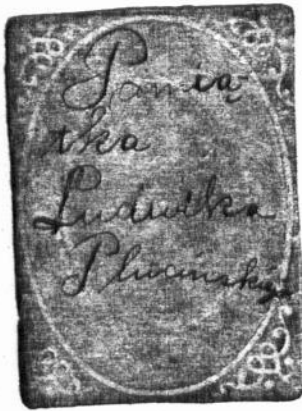 Pamią
tka
Ludwika
Plucińskiego